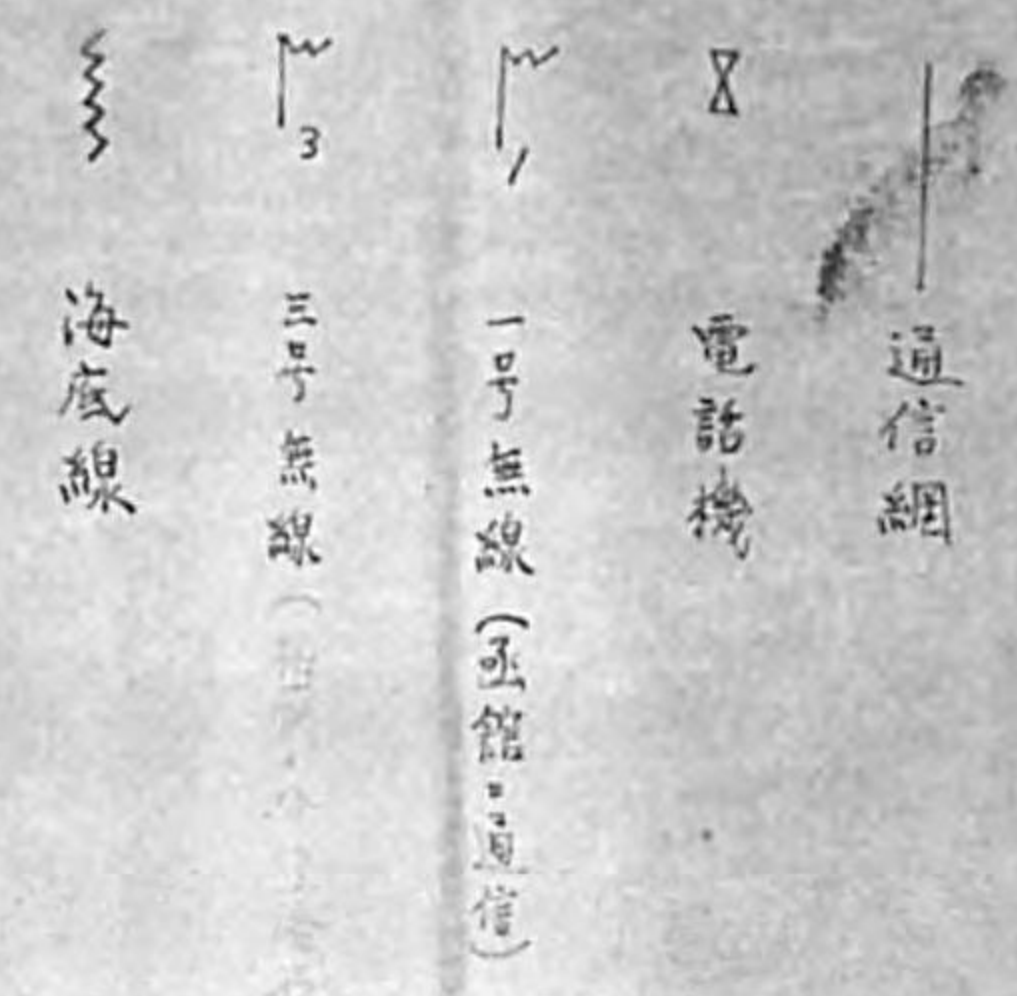 通信網
電話機
1
一号無線(函館ニ通信)
3
三号無線(
海底線